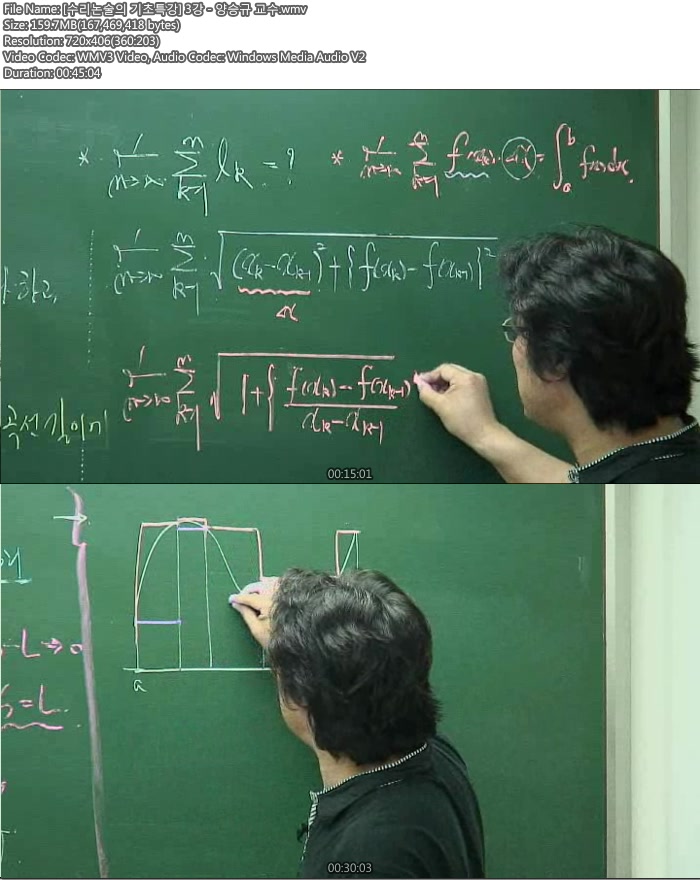 File Name: [수리논술의 기초특강] 3강 - 양승규 교수.wmv
Size: 159.7MB(167,469,418 bytes)
Resolution: 720x406(360:203)
Video Codec: WMV3 Video, Audio Codec: Windows Media Audio V2
Duration: 00:45:04
* lim n→∞ n Σ k=1 l_k = ?
* lim n→∞ n Σ k=1 f(x_k) · Δx = ∫_a^b f(x)dx.
lim n→∞ n Σ k=1 √ (x_k - x_{k-1})² + { f(x_k) - f(x_{k-1}) }²
Δx
lim n→∞ n Σ k=1 √ 1 + { f(x_k) - f(x_{k-1})
x_k - x_{k-1}
곡선 길이
00:15:01
L → 0
S = L.
a
00:30:03